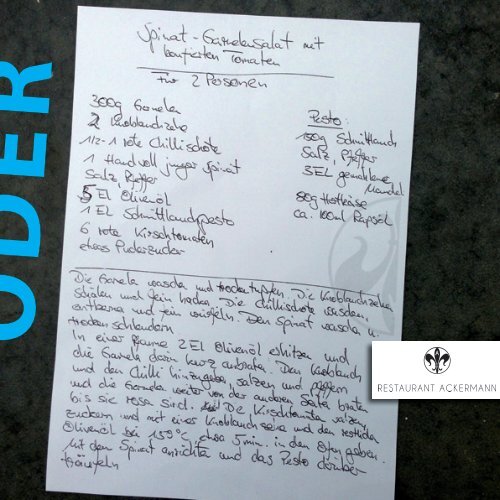 ODER
Spinat-Garnelensalat mit
konfierten Tomaten
Für 2 Personen
300g Garnelen
2 Knoblauchzehe
1/2-1 rote Chillischote
1 Handvoll junger Spinat
Salz, Pfeffer
5 El Olivenöl
1 EL Schnittlauchpesto
6 rote Kirschtomaten
etwas Puderzucker
Pesto:
150g Schnittlauch
Salz, Pfeffer
3EL gemahlene
Mandel
80g Hartkäse
ca. 100ml Rapsöl
Die Garnele waschen und trockentupfen. Die Knoblauchzehen
schälen und fein hacken. Die Chillischote waschen,
entkernen und fein würfeln. Den Spinat waschen u.
trocken schleudern
In einer Pfanne 2 El Olivenöl erhitzen und
die Garnele darin kurz anbraten. Den Knoblauch
und den Chilli hinzugeben, salzen und pfeffern
und die Garnelen weiter von der anderen Seite braten
bis sie rosa sind. Die Kirschtomaten salzen,
zuckern und mit einer Knoblauchzehe und den restlichen
Olivenöl bei 155°C etwa 5min. in den Ofen geben.
Mit dem Spinat anrichten und das Pesto darüber
träufeln
RESTAURANT ACKERMANN